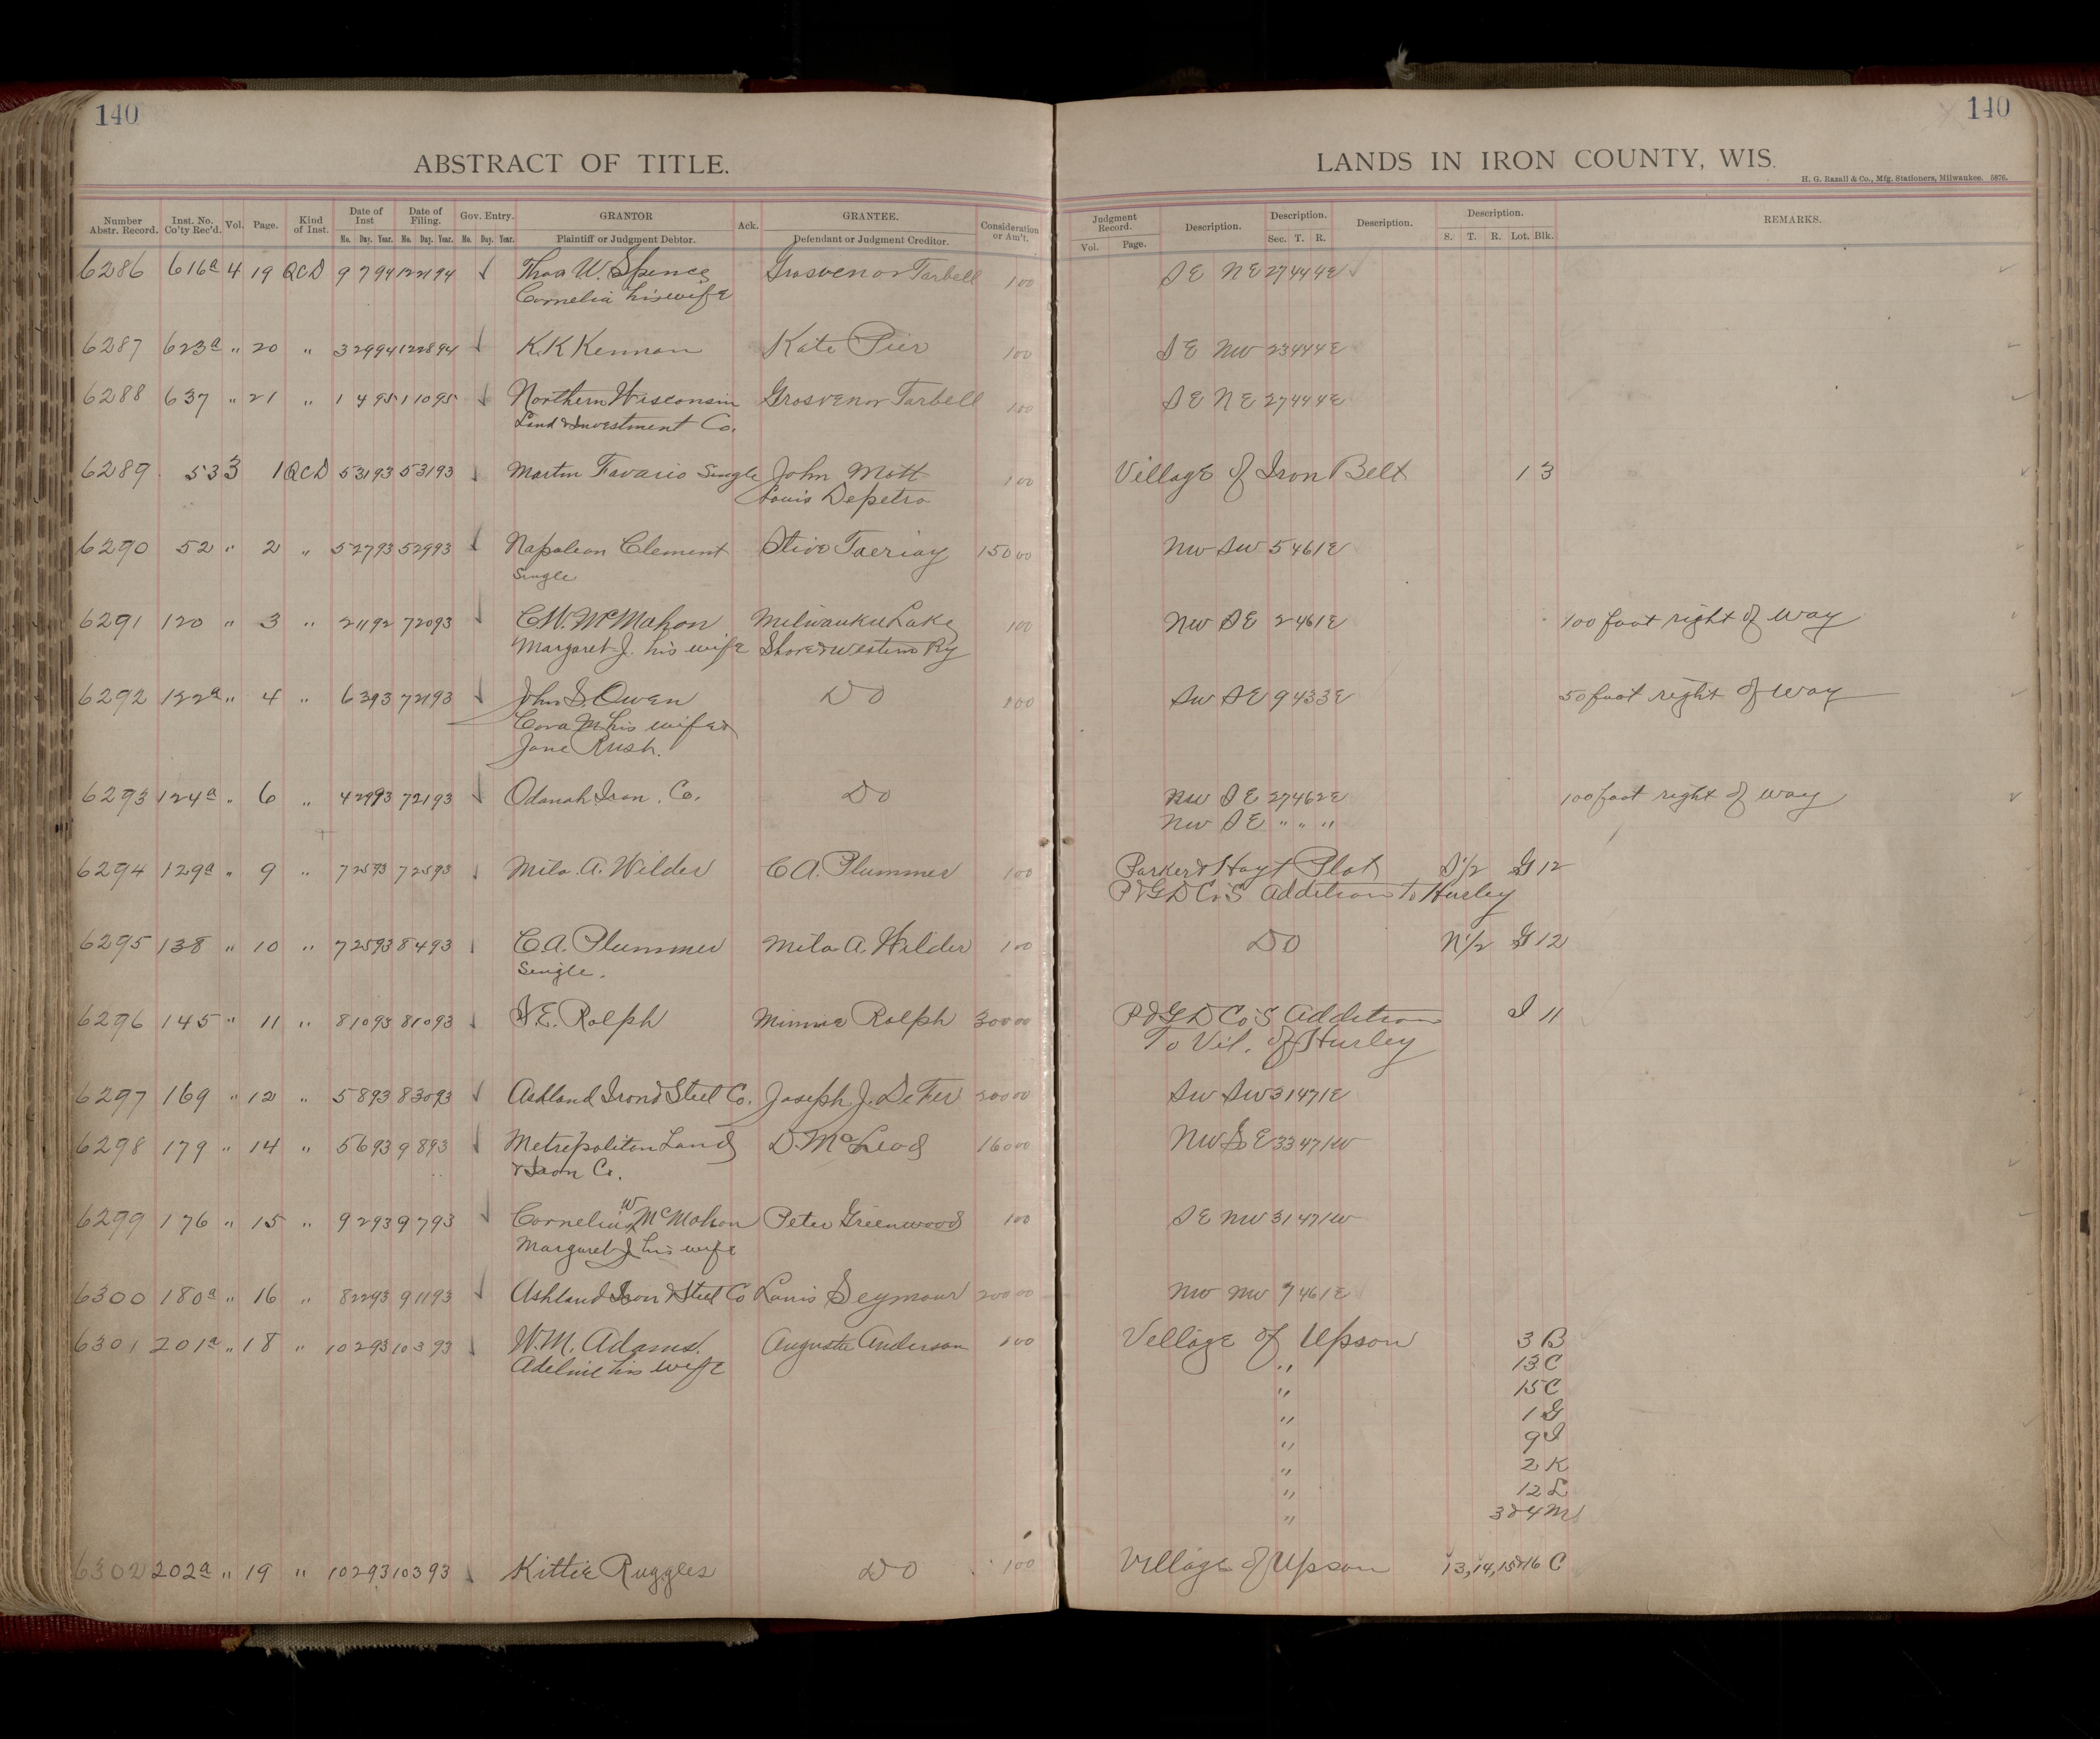 140
140
ABSTRACT OF TITLE.
LANDS IN IRON COUNTY, WIS.
H. G. Razall & Co., Mfg. Stationers, Milwaukee. 5876.
Number Abstr. Record. Inst. No. Co'ty Rec'd. Vol. Page. Kind of Inst. Date of Inst Mo. Day. Year. Date of Filing. Mo. Day. Year. Gov. Entry. Mo. Day. Year. GRANTOR Plaintiff or Judgment Debtor. Ack. GRANTEE. Defendant or Judgment Creditor. Consideration or Am't. Judgment Record. Vol. Page. Description. Description. Sec. T. R. Description. Description. S. T. R. Lot. Blk. REMARKS.
6286 616a 4 19 QCD 9 7 94 12 21 94 Thos W. Spence Grosvenor Tarbell 1 00 SE NE 27 44 4E
Cornelia his wife
6287 623a " 20 " 3 29 94 12 28 94 K.K Kennan Kate Pier 1 00 SE NW 23 44 4E
6288 637 " 21 " 1 4 95 1 10 95 Northern Wisconsin Grosvenor Tarbell 1 00 SE NE 27 44 4E
Land & Investment Co.
6289 53 3 1 QCD 5 31 93 5 31 93 Martin Favario Single John Mott 1 00 Village of Iron Belt 1 3
Louis Depetro
6290 52 " 2 " 5 27 93 5 29 93 Napoleon Clement 150 00 NW SW 5 46 1E
Single
6291 120 " 3 " 2 11 92 7 20 93 C.W. McMahon Milwaukee Lake 1 00 NW SE 2 46 1E 100 foot right of way
Margaret J. his wife Shore & Western Ry
6292 122a " 4 " 6 3 93 7 21 93 John S. Owen DO 1 00 SW SE 9 43 3E 50 foot right of way
Cora M his wife &
Jane Rush.
6293 124a " 6 " 4 29 93 7 21 93 Odanah Iron. Co. DO SE 27 46 2E 100 foot right of way
NW SE " " "
6294 129a " 9 " 7 25 93 7 25 93 Milo. A. Wilder C A. Plummer 1 00 Parker & Hoyt Plat S 1/2 G 12
P&GD Co's Addition To Hurley
6295 138 " 10 " 7 25 93 8 4 93 C. A. Plummer Milo A. Wilder 1 00 DO N 1/2 G 12
Single.
6296 145 " 11 " 8 10 93 8 10 93 E. Rolph Minnie Rolph 300 00 P&GD Co's Addition I 11
To Vil. of Hurley
6297 169 " 12 " 5 8 93 8 30 93 Ashland Iron & Steel Co. Joseph J. DeFer 200 00 SW SW 31 47 1E
6298 179 " 14 " 5 6 93 9 8 93 Metropolitan Land D. McLeod 160 00 NW SE 33 47 1W
& Iron Co.
6299 176 " 15 " 9 2 93 9 7 93 Cornelius W McMahon Peter Greenwood 1 00 SE NW 31 47 1W
Margaret J his wife
6300 180a " 16 " 8 22 93 9 11 93 Ashland Iron & Steel Co Louis Seymour 200 00 NW NW 7 46 1E
6301 201a " 18 " 10 2 93 10 3 93 W.M. Adams. Augusta Anderson 1 00 Village of Upson 3 B
Adeline his wife " 13 C
" 15 C
" 1 G
" 9 I
" 2 K
" 12 L
" 3&4 M
6302 202a " 19 " 10 2 93 10 3 93 Kittie Ruggles DO 1 00 Village of Upson 13,14,15&16 C